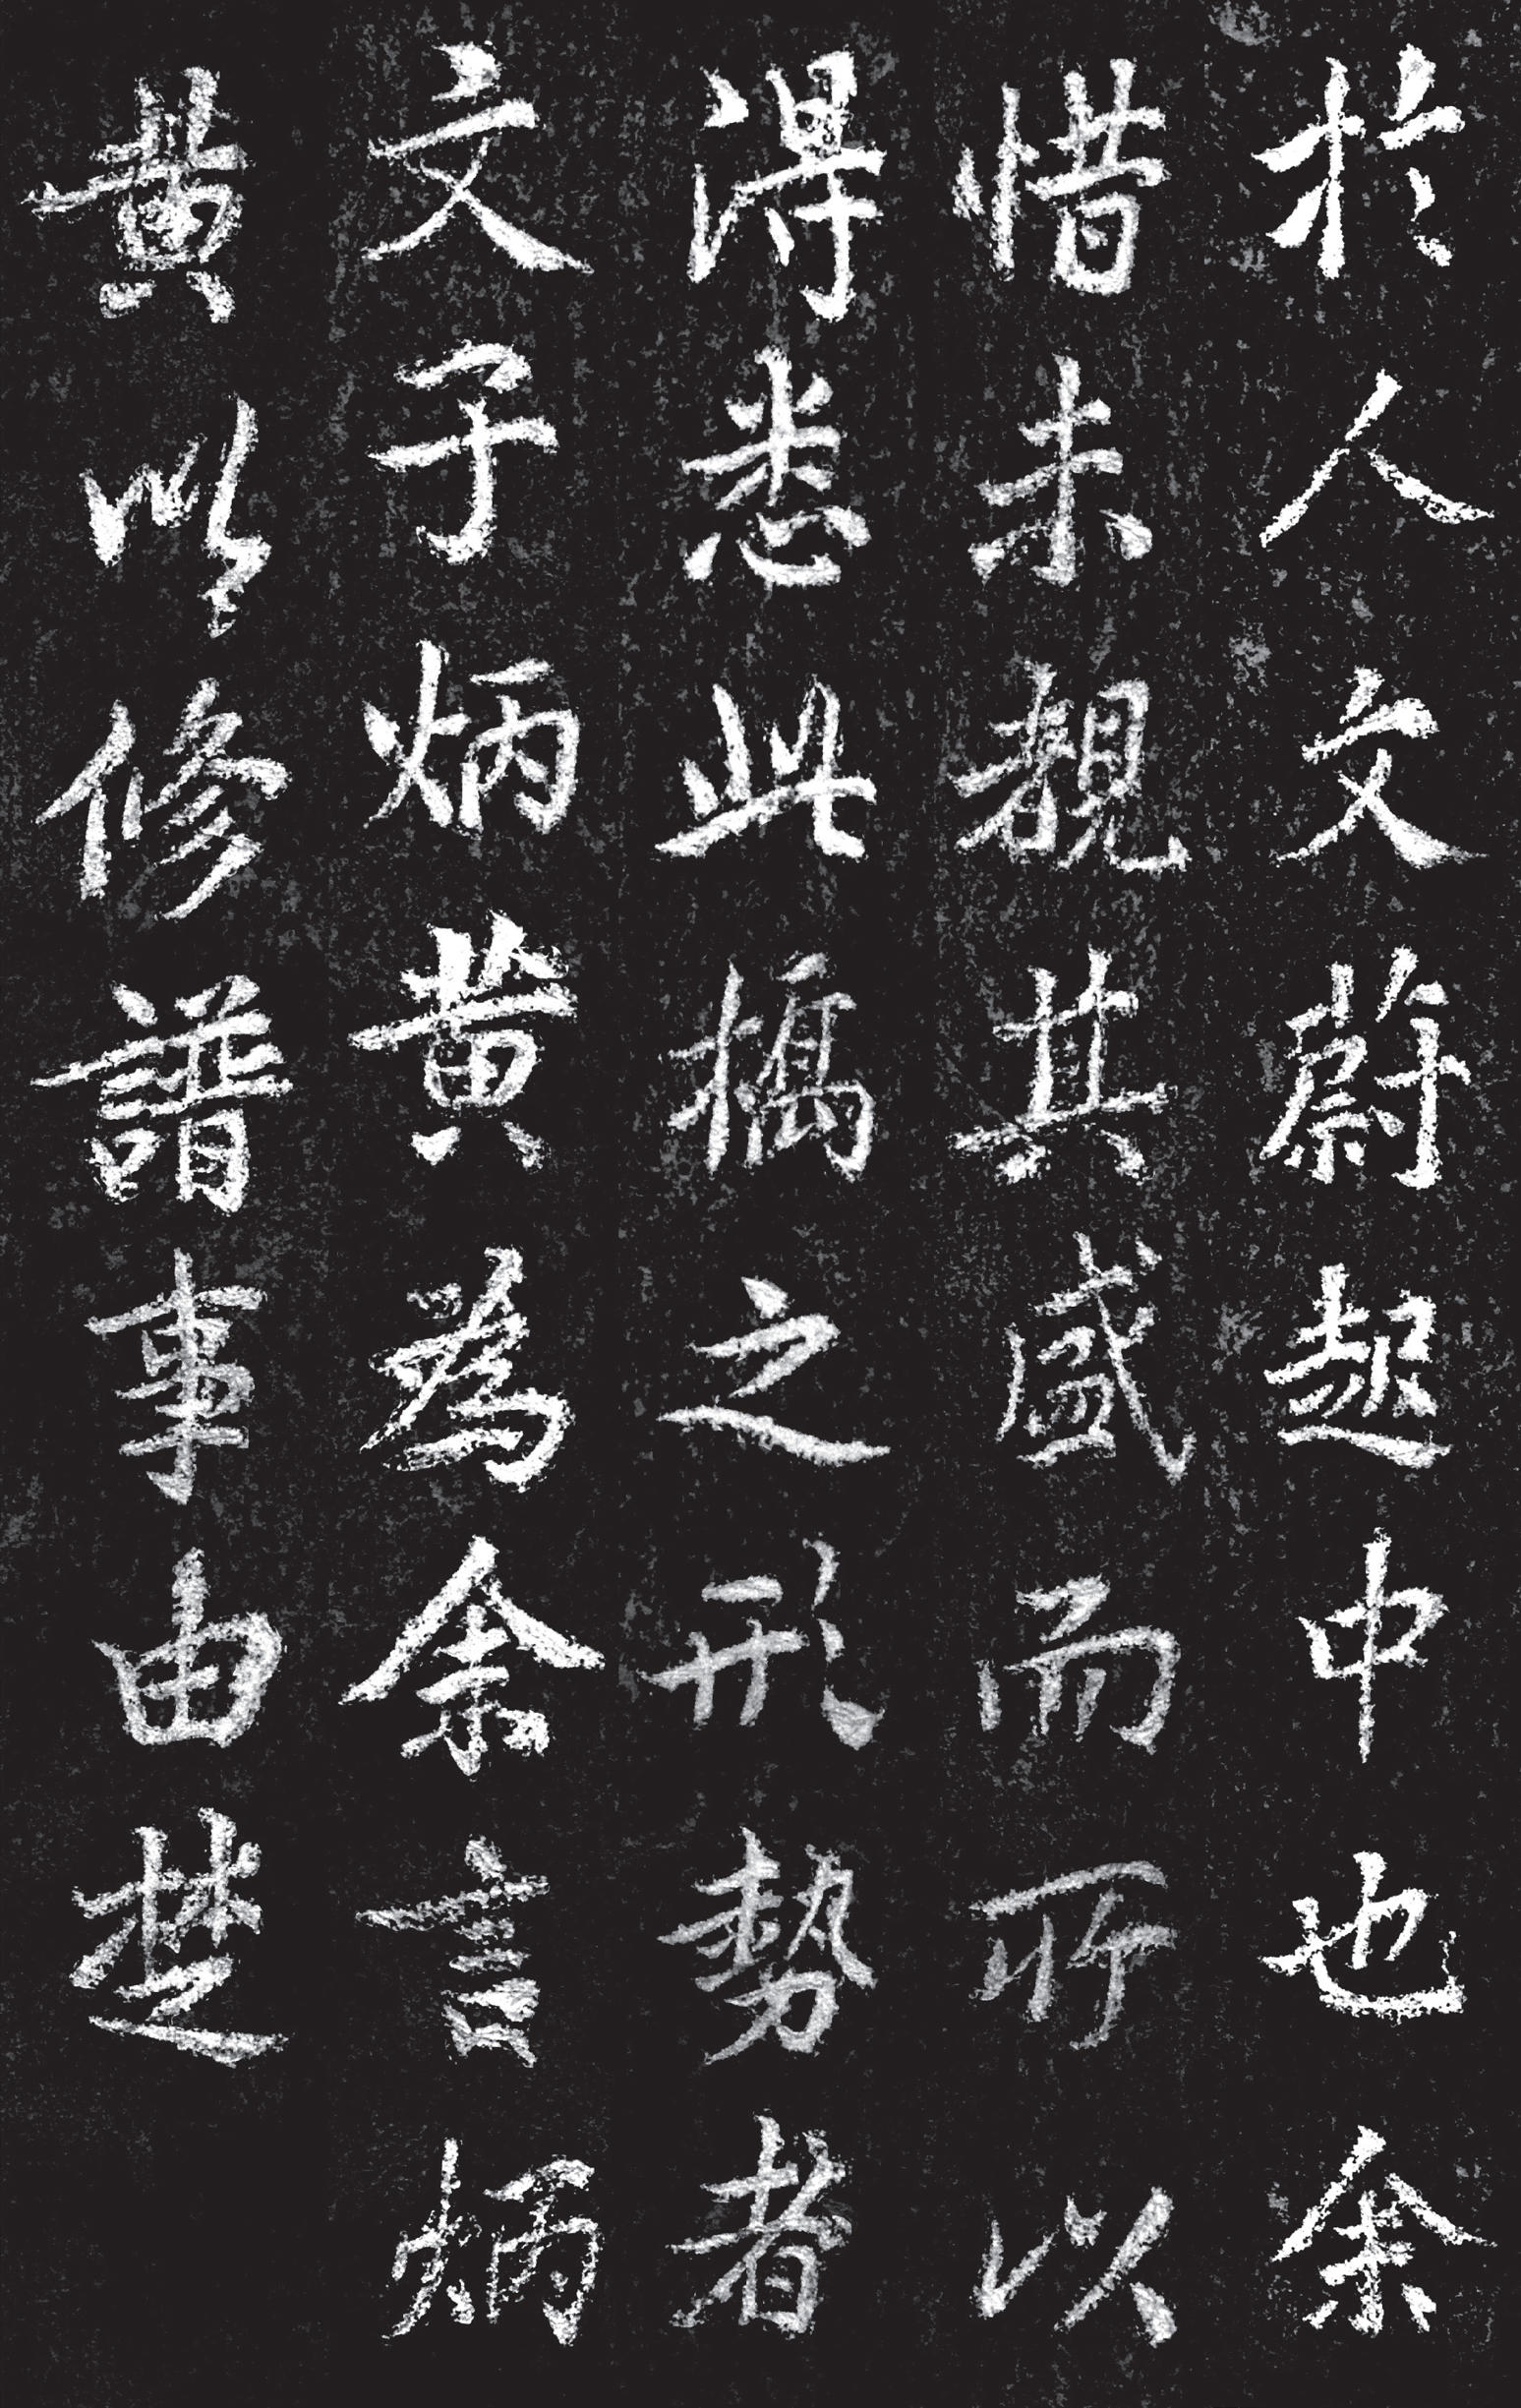 於人文蔚起中也余
惜未覩其盛而所以
得悉此橋之形勢者
文子炳黄為余言炳
黄以修譜事由楚